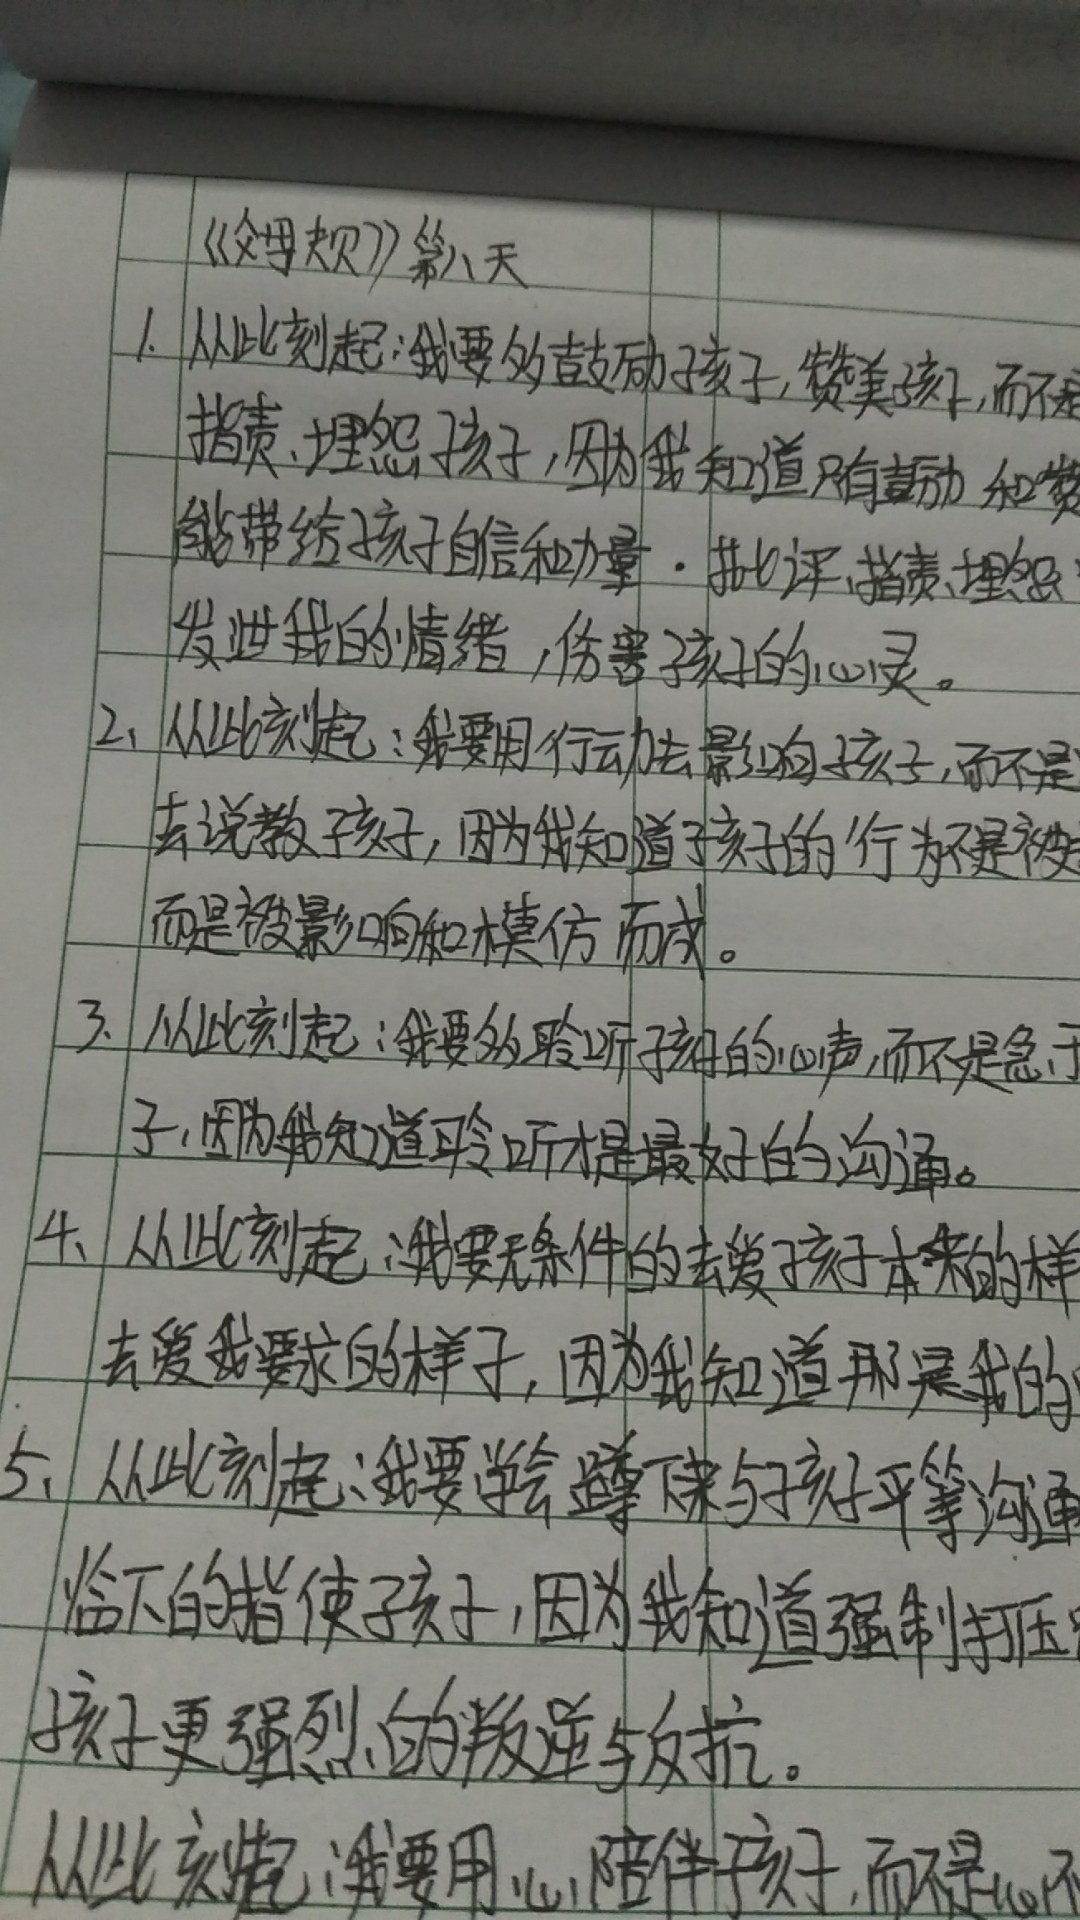 《父母规》第八天
1. 从此刻起:我要多鼓励孩子,赞美孩子,而不是
指责、埋怨孩子,因为我知道只有鼓励和赞
能带给孩子自信和力量.批评、指责、埋怨
发泄我的情绪,伤害孩子的心灵。
2、从此刻起:我要用行动去影响孩子,而不是
去说教孩子,因为我知道孩子的行为不是被
而是被影响和模仿而成。
3、从此刻起:我要多聆听孩子的心声,而不是急于
子,因为我知道聆听才是最好的沟通。
4、从此刻起:我要无条件的去爱孩子本来的样
去爱我要求的样子,因为我知道那是我的
5、从此刻起:我要学会蹲下来与孩子平等沟通
临下的指使孩子,因为我知道强制打压
孩子更强烈的叛逆与反抗。
从此刻起:我要用心陪伴孩子,而不是心不